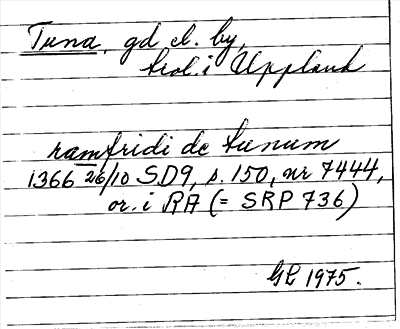 Tuna, gd el. by,
trol. i Uppland
ramfridi de tunum
1366 26/10 SD9, s. 150, nr 7444,
or. i RA (= SRP 736)
GL 1975.